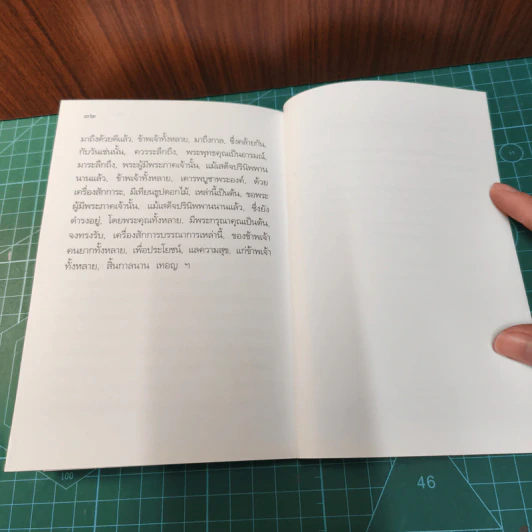 ๓๒
มาถึงด้วยดีแล้ว, ข้าพเจ้าทั้งหลาย, มาถึงกาล, ซึ่งคล้ายกัน,
กับวันเช่นนั้น, ควรระลึกถึง, พระพุทธคุณเป็นอารมณ์,
มาระลึกถึง, พระผู้มีพระภาคเจ้านั้น, แม้เสด็จปรินิพพาน
นานแล้ว, ข้าพเจ้าทั้งหลาย, เคารพบูชาพระองค์, ด้วย
เครื่องสักการะ, มีเทียนธูปดอกไม้, เหล่านี้เป็นต้น, ขอพระ
ผู้มีพระภาคเจ้านั้น, แม้เสด็จปรินิพพานนานแล้ว, ซึ่งยัง
ดำรงอยู่, โดยพระคุณทั้งหลาย, มีพระกรุณาคุณเป็นต้น,
จงทรงรับ, เครื่องสักการบรรณาการเหล่านี้, ของข้าพเจ้า
คนยากทั้งหลาย, เพื่อประโยชน์, แลความสุข, แก่ข้าพเจ้า
ทั้งหลาย, สิ้นกาลนาน เทอญ ฯ
100
46